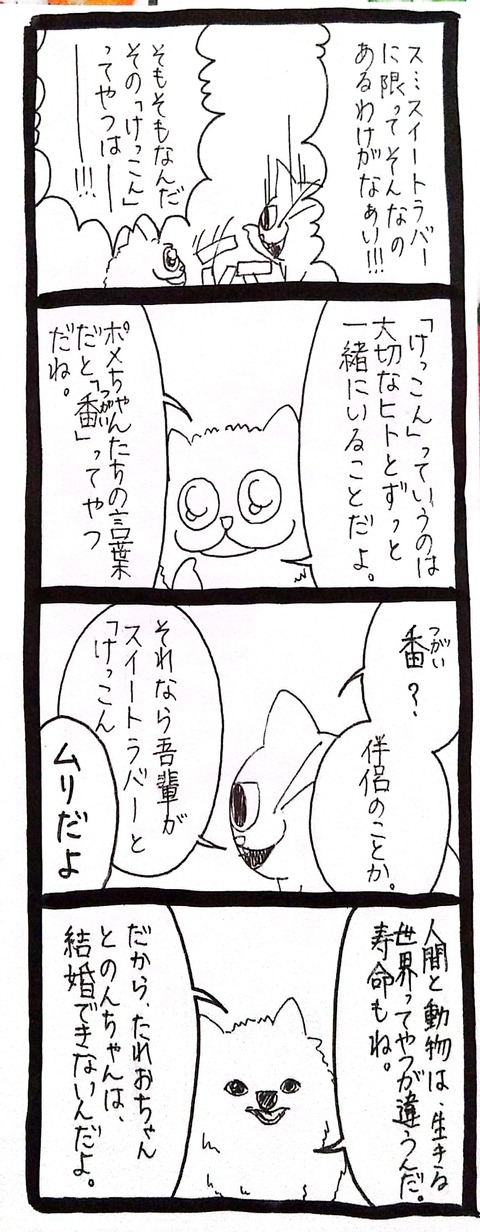 スミスイートラバー
に限ってそんなの
あるわけがなぁい!!!
そもそもなんだ
その「けっこん」
ってやつは―
―!!!
「けっこん」っていうのは
大切なヒトとずっと
一緒にいることだよ。
ポメちゃんたちの言葉
だと「番」ってやつ
つがい
だね。
つがい
番?
伴侶のことか。
それなら吾輩が
スイートラバーと
「けっこん
ムリだよ
人間と動物は、生きる
世界ってやつが違うんだ。
寿命もね。
だから、たれおちゃん
とのんちゃんは、
結婚できないんだよ。